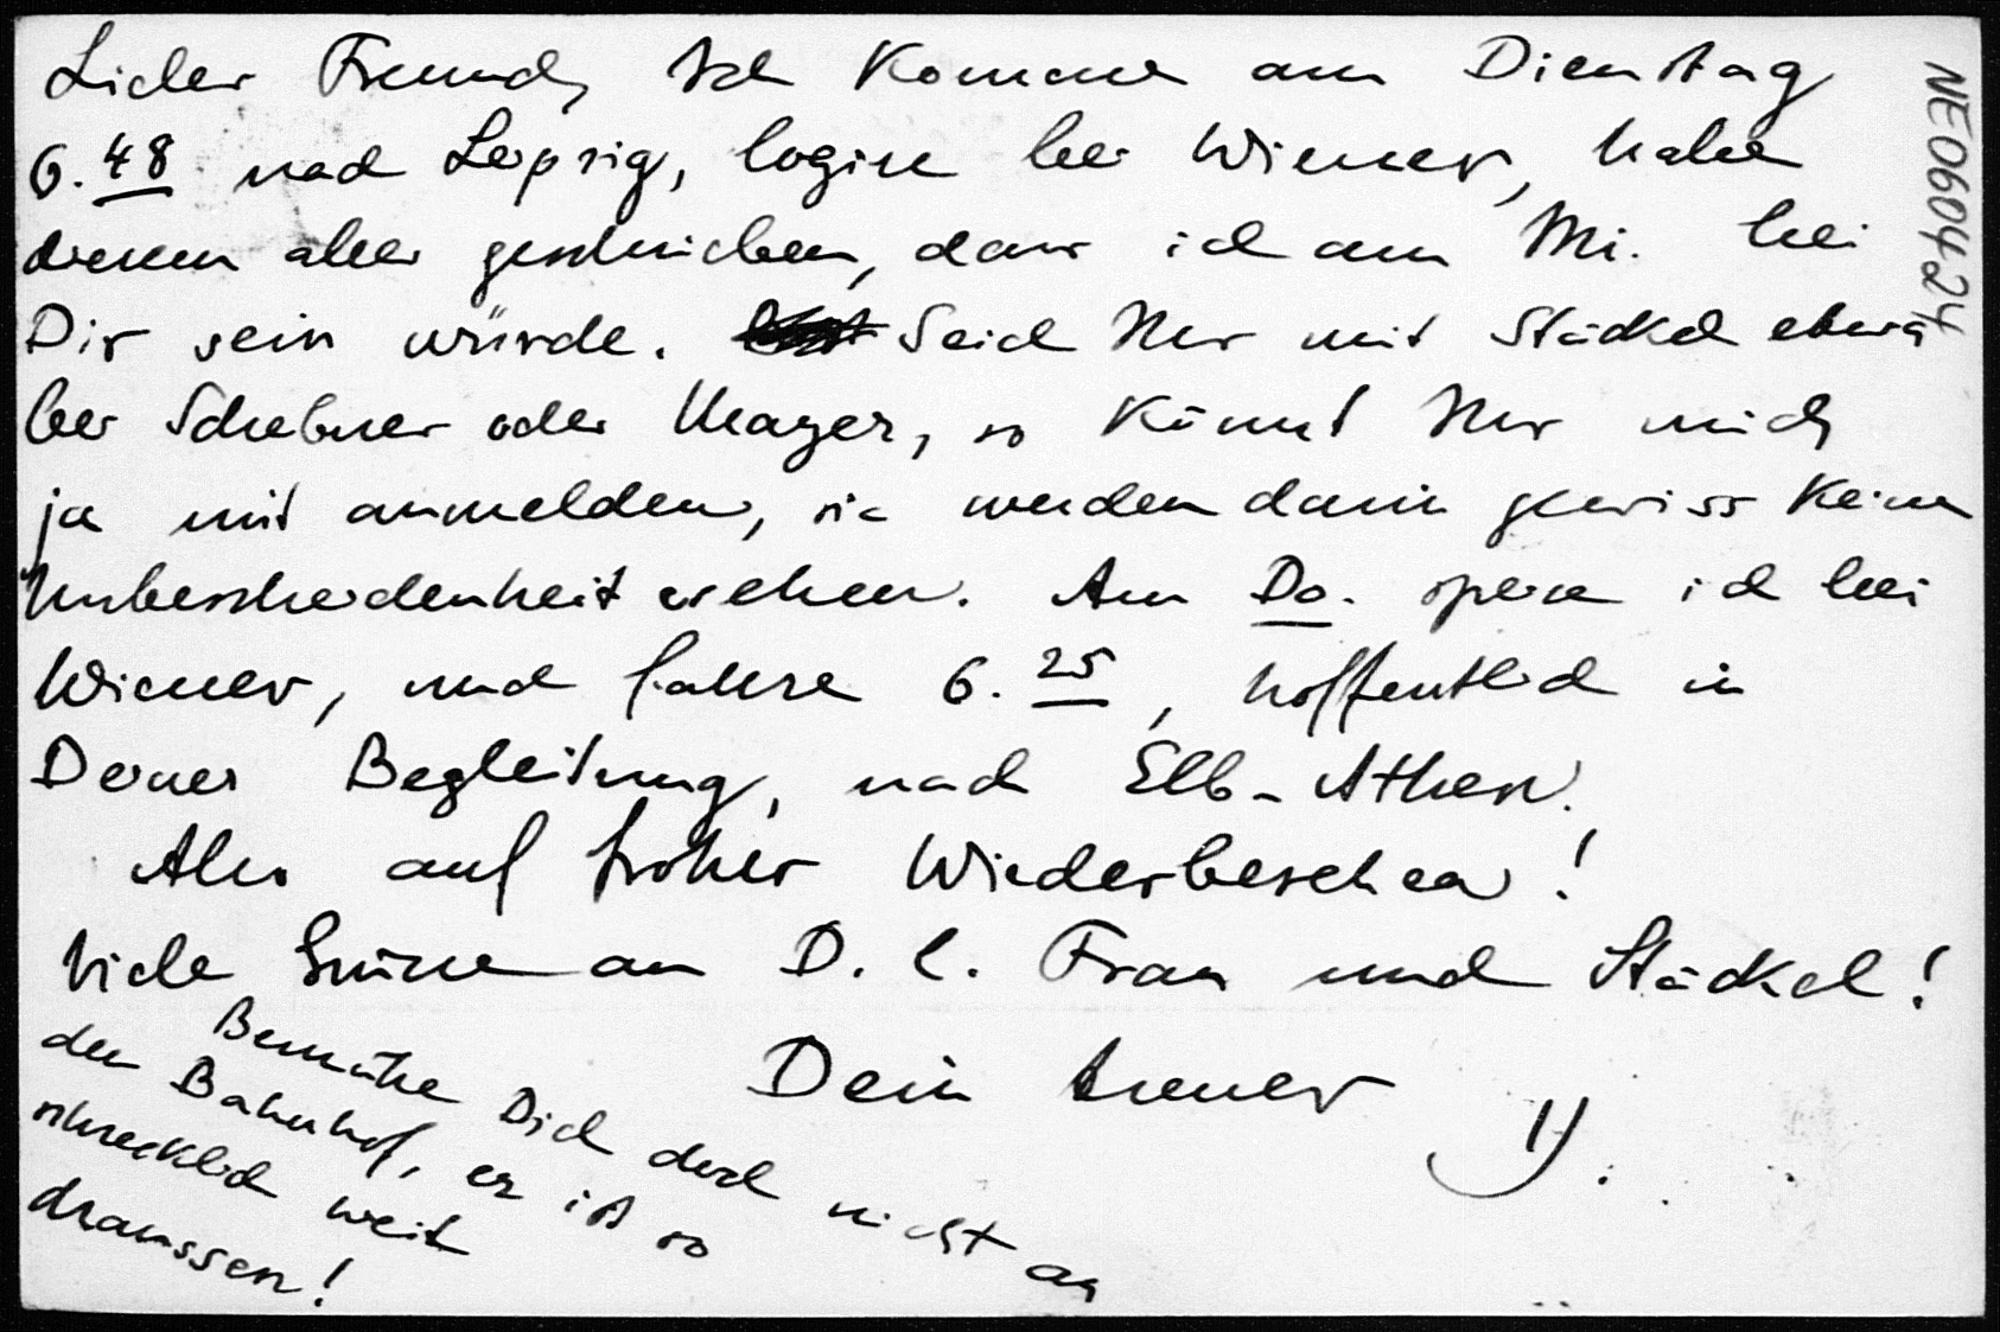 Lieber Freund, Ich komme am Dienstag
6.48 nach Leipzig, logire bei Wiener, habe
diesem aber geschrieben, dass ich am Mi. bei
Dir sein würde. Seid Ihr mit Stäckel etwa
bei Scheibner oder Mayer, so könnt Ihr mich
ja mit anmelden, sie werden darin gewiss keine
Unbescheidenheit sehen. Am Do. speise ich bei
Wiener, und fahre 6.25, hoffentlich in
Deiner Begleitung, nach Elb-Athen.
Also auf frohes Wiederbesehen!
Viele Grüsse an D. l. Frau und Stäckel!
Dein treuer
Bemühe Dich doch nicht an
den Bahnhof, er ist so
schrecklich weit
draussen!
NE060424